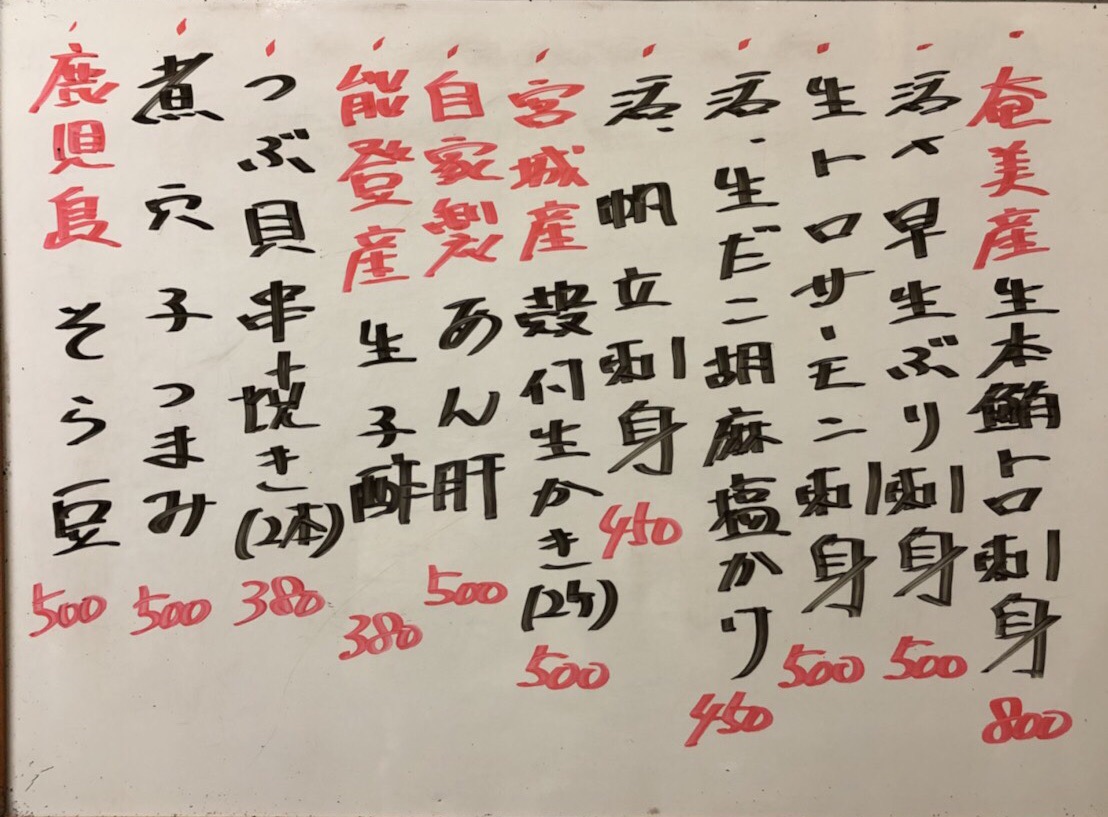 奄美産生本鮪トロ刺身 800
活〆早生ぶり刺身 500
生トロサーモン刺身 500
活、生だこ胡麻塩かり 450
活、帆立刺身 450
宮城産殻付生かき(2ケ) 500
自家製あん肝 500
能登産生子酢 380
つぶ貝串焼き(2本) 380
煮穴子つまみ 500
鹿児島そら豆 500